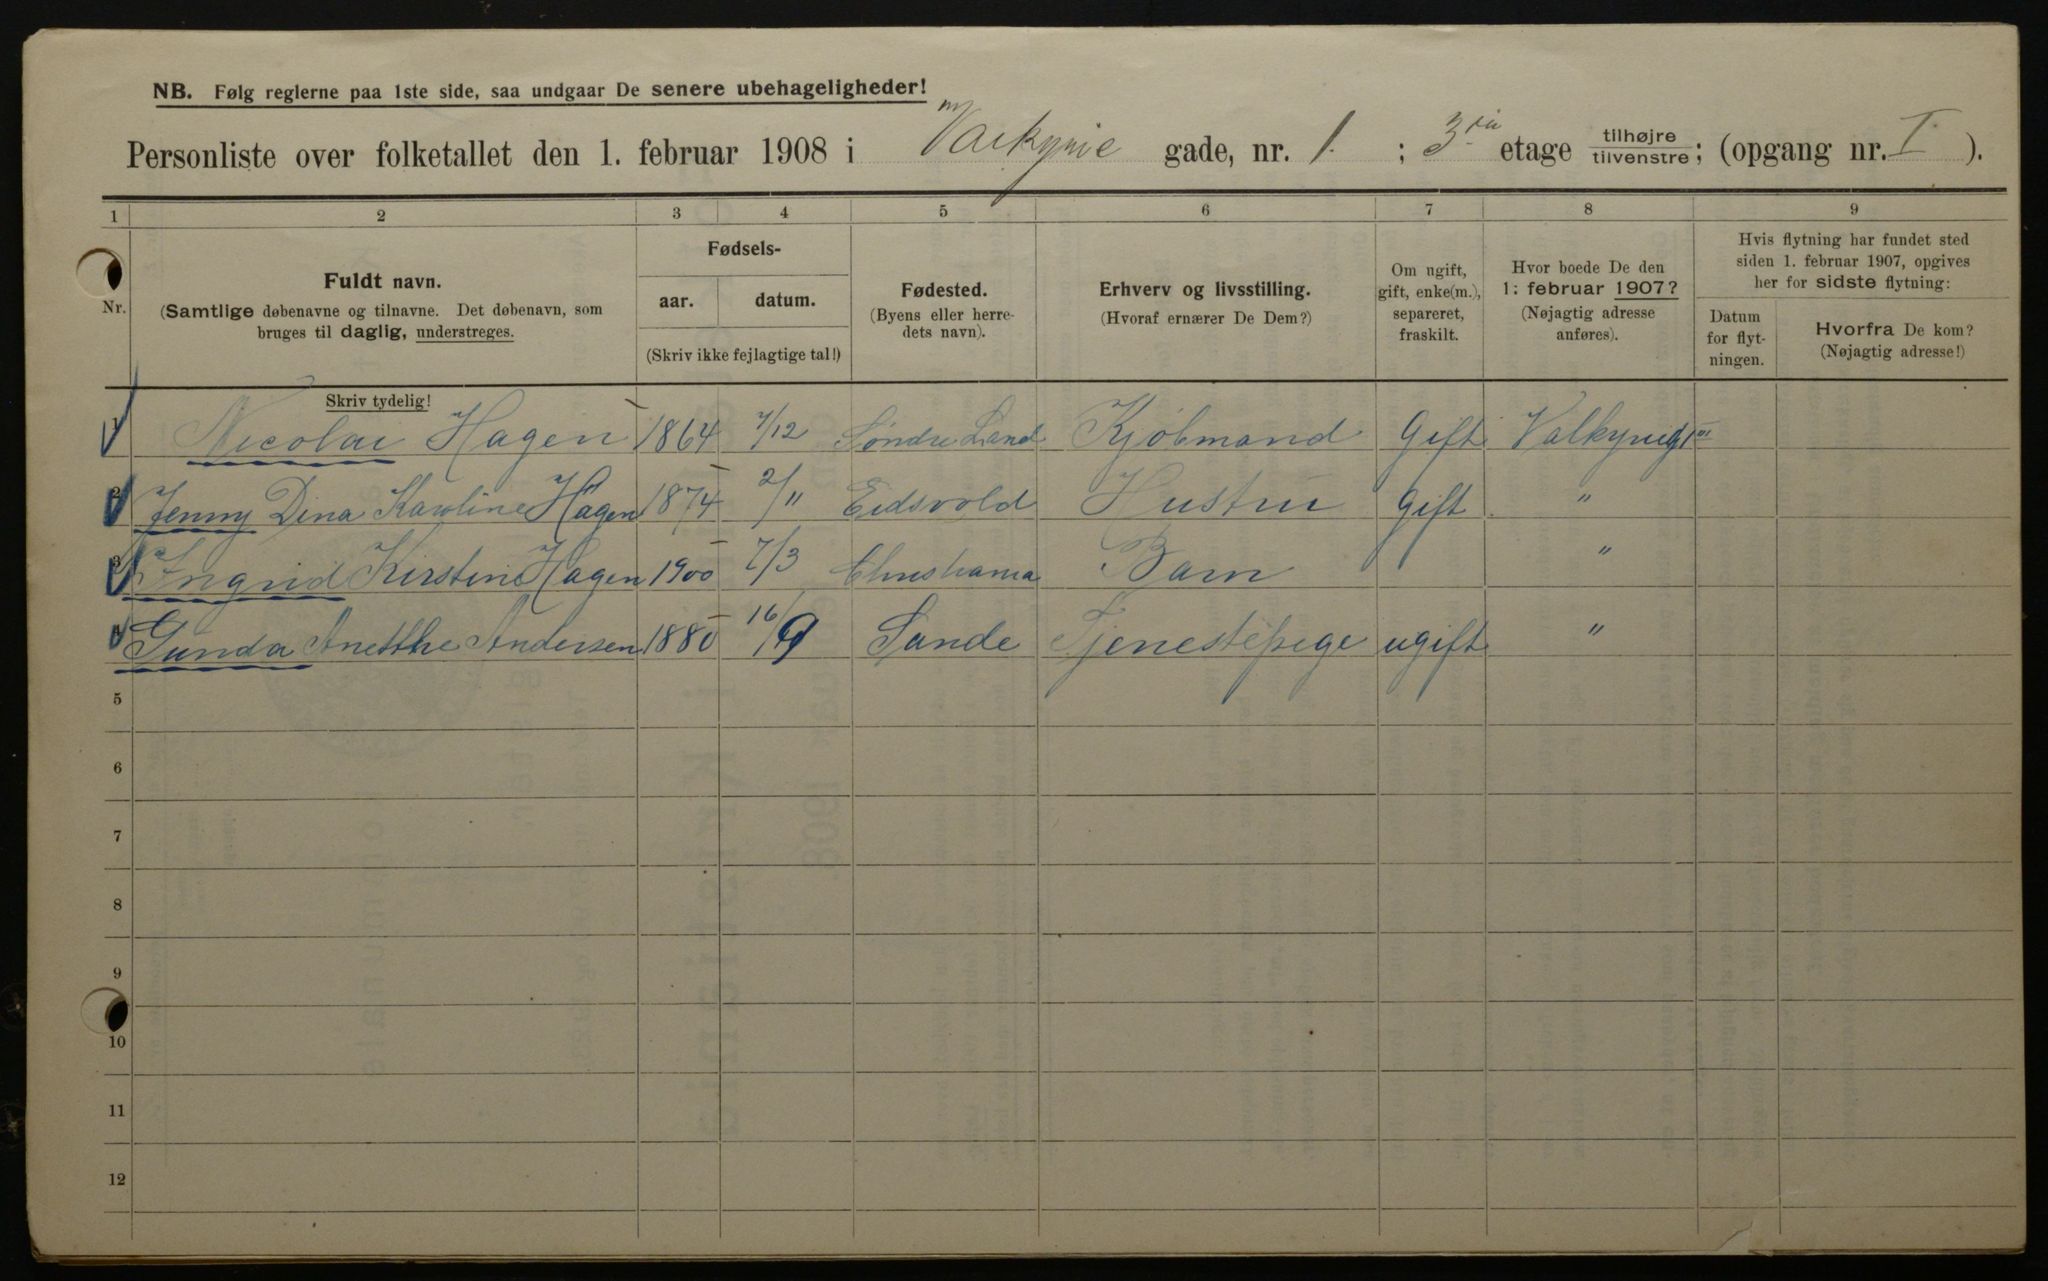 NB. Følg reglerne paa 1ste side, saa undgaar De senere ubehageligheder!
Personliste over folketallet den 1. februar 1908 i Valkyrie gade, nr. 1. ; 3 etage tilhøjre tilvenstre; (opgang nr. I ).
1 2 3 4 5 6 7 8 9
Nr.
Fuldt navn.
(Samtlige døbenavne og tilnavne. Det døbenavn, som
bruges til daglig, understreges.
Skriv tydelig!
Fødsels-
aar. datum.
(Skriv ikke fejlagtige tal!)
Fødested.
(Byens eller herre-
dets navn).
Erhverv og livsstilling.
(Hvoraf ernærer De Dem?)
Om ugift,
gift, enke(m.),
separeret,
fraskilt.
Hvor boede De den
1: februar 1907?
(Nøjagtig adresse
anføres).
Hvis flytning har fundet sted
siden 1. februar 1907, opgives
her for sidste flytning:
Datum
for flyt-
ningen.
Hvorfra De kom?
(Nøjagtig adresse!)
1 Nicolai Hagen 1864 7/12 Søndre Land Kjöbmand Gift Valkyriegd 1 III
2 Jenny Dina Karoline Hagen 1874 2/11 Eidsvold Hustru gift "
3 Ingrid Kirstine Hagen 1900 7/3 Christiania Barn "
4 Gunda Anetthe Andersen 1880 16/9 Sande Tjenestepige ugift "
5
6
7
8
9
10
11
12